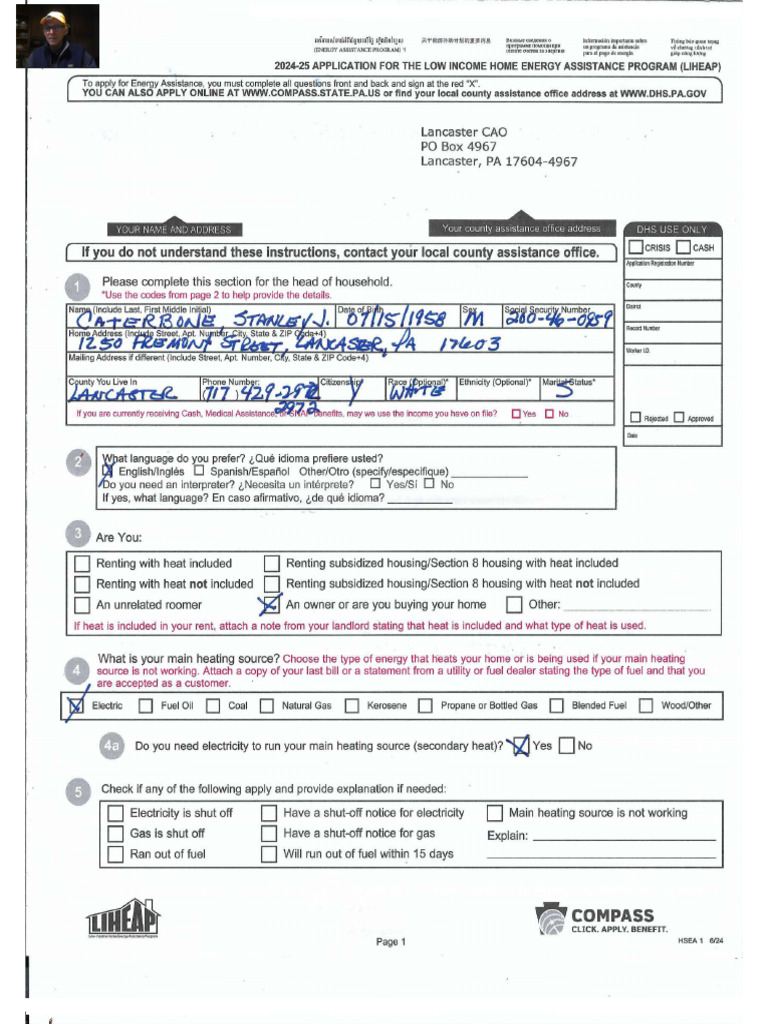 (ENERGY ASSISTANCE PROGRAM) ។
Información importante sobre
un programa de asistencia
para el pago de energía
2024-25 APPLICATION FOR THE LOW INCOME HOME ENERGY ASSISTANCE PROGRAM (LIHEAP)
To apply for Energy Assistance, you must complete all questions front and back and sign at the red "X".
YOU CAN ALSO APPLY ONLINE AT WWW.COMPASS.STATE.PA.US or find your local county assistance office address at WWW.DHS.PA.GOV
Lancaster CAO
PO Box 4967
Lancaster, PA 17604-4967
YOUR NAME AND ADDRESS
Your county assistance office address
DHS USE ONLY
CRISIS CASH
Application Registration Number
County
District
Record Number
Worker I.D.
Rejected Approved
Date
If you do not understand these instructions, contact your local county assistance office.
1 Please complete this section for the head of household.
*Use the codes from page 2 to help provide the details.
Name (Include Last, First Middle Initial) Date of Birth Sex Social Security Number
CATERBONE, STANLEY J. 07/15/1958 M 200-46-0859
Home Address (Include Street, Apt. Number, City, State & ZIP Code+4)
1250 FREMONT STREET, LANCASTER, PA 17603
Mailing Address if different (Include Street, Apt. Number, City, State & ZIP Code+4)
County You Live In Phone Number: Citizenship Race (Optional)* Ethnicity (Optional)* Marital Status*
LANCASTER (717) 429-2972 Y WHITE S
2972
If you are currently receiving Cash, Medical Assistance, or SNAP benefits, may we use the income you have on file? Yes No
2 What language do you prefer? ¿Qué idioma prefiere usted?
X English/Inglés Spanish/Español Other/Otro (specify/especifique)
Do you need an interpreter? ¿Necesita un intérprete? Yes/Sí No
If yes, what language? En caso afirmativo, ¿de qué idioma?
3 Are You:
Renting with heat included Renting subsidized housing/Section 8 housing with heat included
Renting with heat not included Renting subsidized housing/Section 8 housing with heat not included
An unrelated roomer X An owner or are you buying your home Other:
If heat is included in your rent, attach a note from your landlord stating that heat is included and what type of heat is used.
4 What is your main heating source? Choose the type of energy that heats your home or is being used if your main heating
source is not working. Attach a copy of your last bill or a statement from a utility or fuel dealer stating the type of fuel and that you
are accepted as a customer.
X Electric Fuel Oil Coal Natural Gas Kerosene Propane or Bottled Gas Blended Fuel Wood/Other
4a Do you need electricity to run your main heating source (secondary heat)? X Yes No
5 Check if any of the following apply and provide explanation if needed:
Electricity is shut off Have a shut-off notice for electricity Main heating source is not working
Gas is shut off Have a shut-off notice for gas Explain:
Ran out of fuel Will run out of fuel within 15 days
LIHEAP
Low-Income Home Energy Assistance Program
COMPASS
CLICK. APPLY. BENEFIT.
Page 1
HSEA 1 6/24